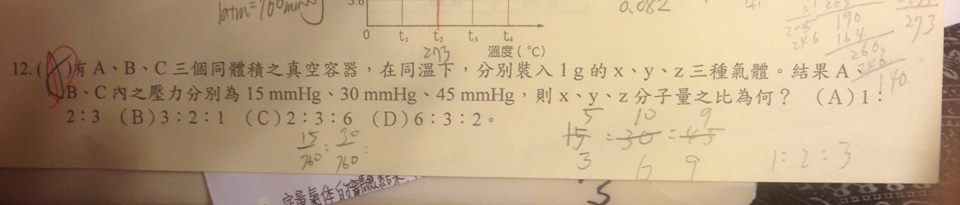 1atm=760mmHg
0.082
0 t₁ t₂ t₃ t₄
273 溫度(°C)
205 190
246 164
260
246
140
273
12.( A )有 A、B、C 三個同體積之真空容器,在同溫下,分別裝入 1 g 的 x、y、z 三種氣體。結果 A、
B、C 內之壓力分別為 15 mmHg、30 mmHg、45 mmHg,則 x、y、z 分子量之比為何? (A) 1:
2:3 (B) 3:2:1 (C) 2:3:6 (D) 6:3:2。
15/760 : 30/760 :
5 10 9
15 : 30 = 45
3 6 9
1:2:3